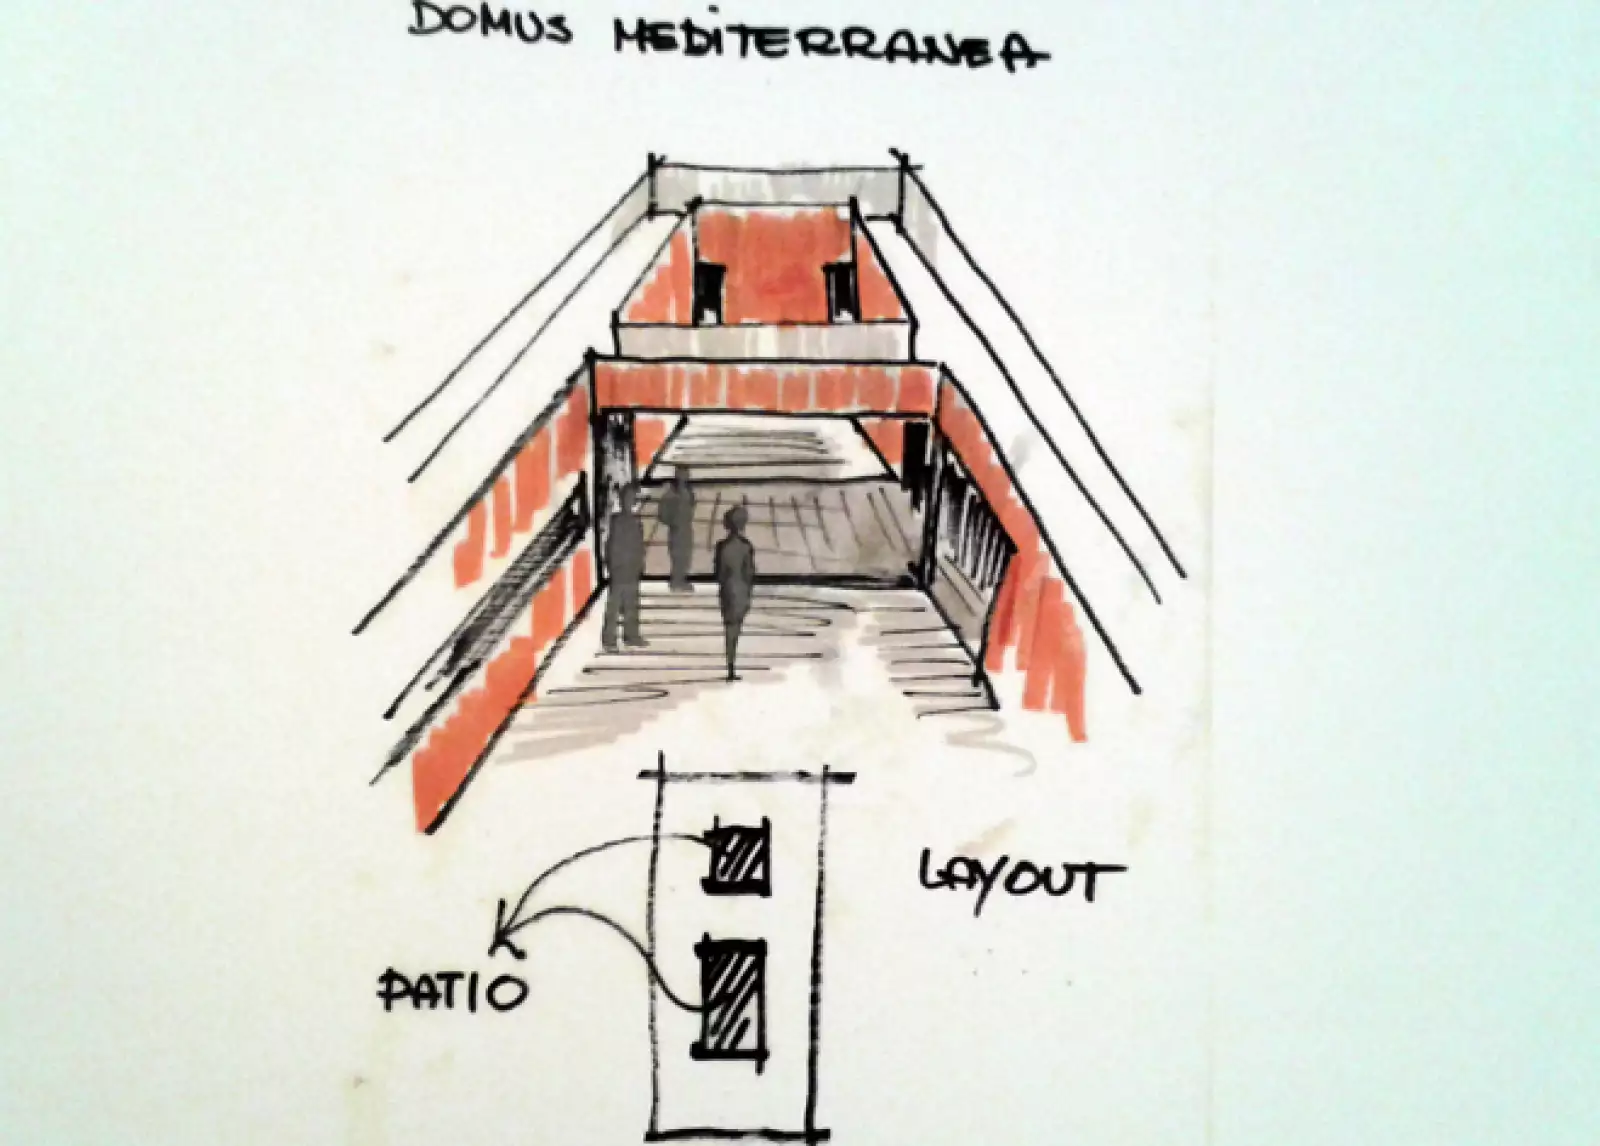 DOMUS MEDITERRANEA
LAYOUT
PATIO